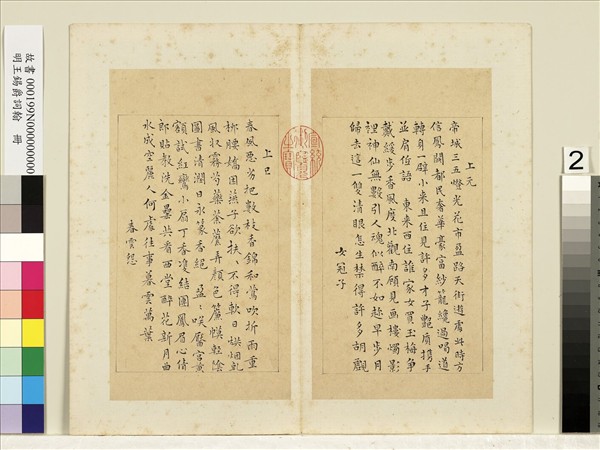 上元
帝城三五燈光花市盈路天街遊處此時方
信鳳闕都民奢華豪富紗籠纔過喝道
轉身一壁小來且住見許多才子艷質攜手
並肩低語 東來西往誰家女買玉梅爭
戴緩步香風度北觀南顧見畫樓燭影
裡神仙無數引人魂似醉不如趁早步月
歸去這一雙清眼怎生禁得許多胡覷
女冠子
上巳
春風惡劣把數枝香錦和鶯吹折雨重
柳腰嬌困燕子欲扶、不得軟日烘烟乾
風收霧芍藥荼蘼弄顏色簾幙輕陰
圖書清潤日永篆香絕 盈、咲靨宮黃
額試紅鸞小扇丁香雙結團鳳眉心倩
郎貼教洗金罍共看西堂醉花新月曲
水成空麗人何處往事暮雲萬葉
春雲怨
故書 000199N000000000
明王錫爵詞翰 冊
2